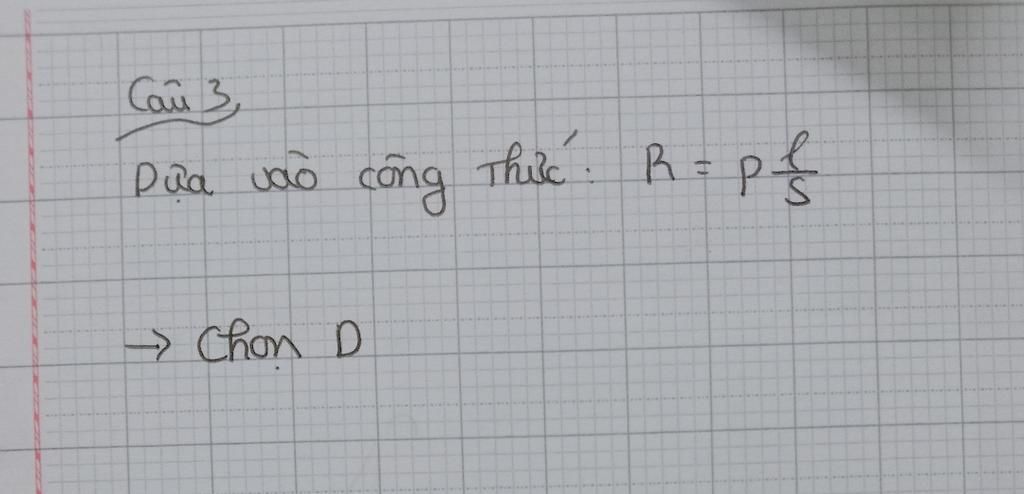 Câu 3,
Dựa vào công thức: R = ρ l/S
→ Chọn D